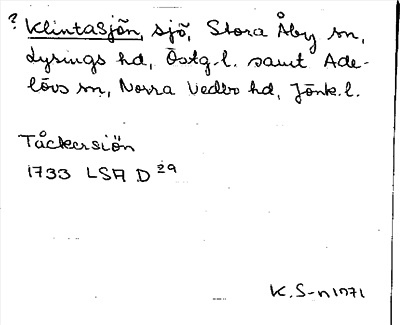 ? Klintasjön, sjö, Stora Åby sn,
Lysings hd, Östg.l. samt Ade-
lövs sn, Norra Vedbo hd, Jönk.l.
Tåckersiön
1733 LSA D 29
K. S-n 1971